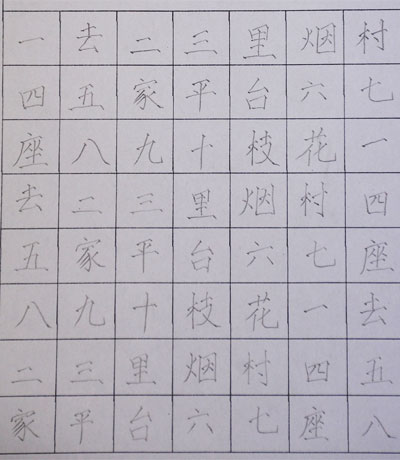 一去二三里烟村
四五家平台六七
座八九十枝花一
去二三里烟村四
五家平台六七座
八九十枝花一去
二三里烟村四五
家平台六七座八